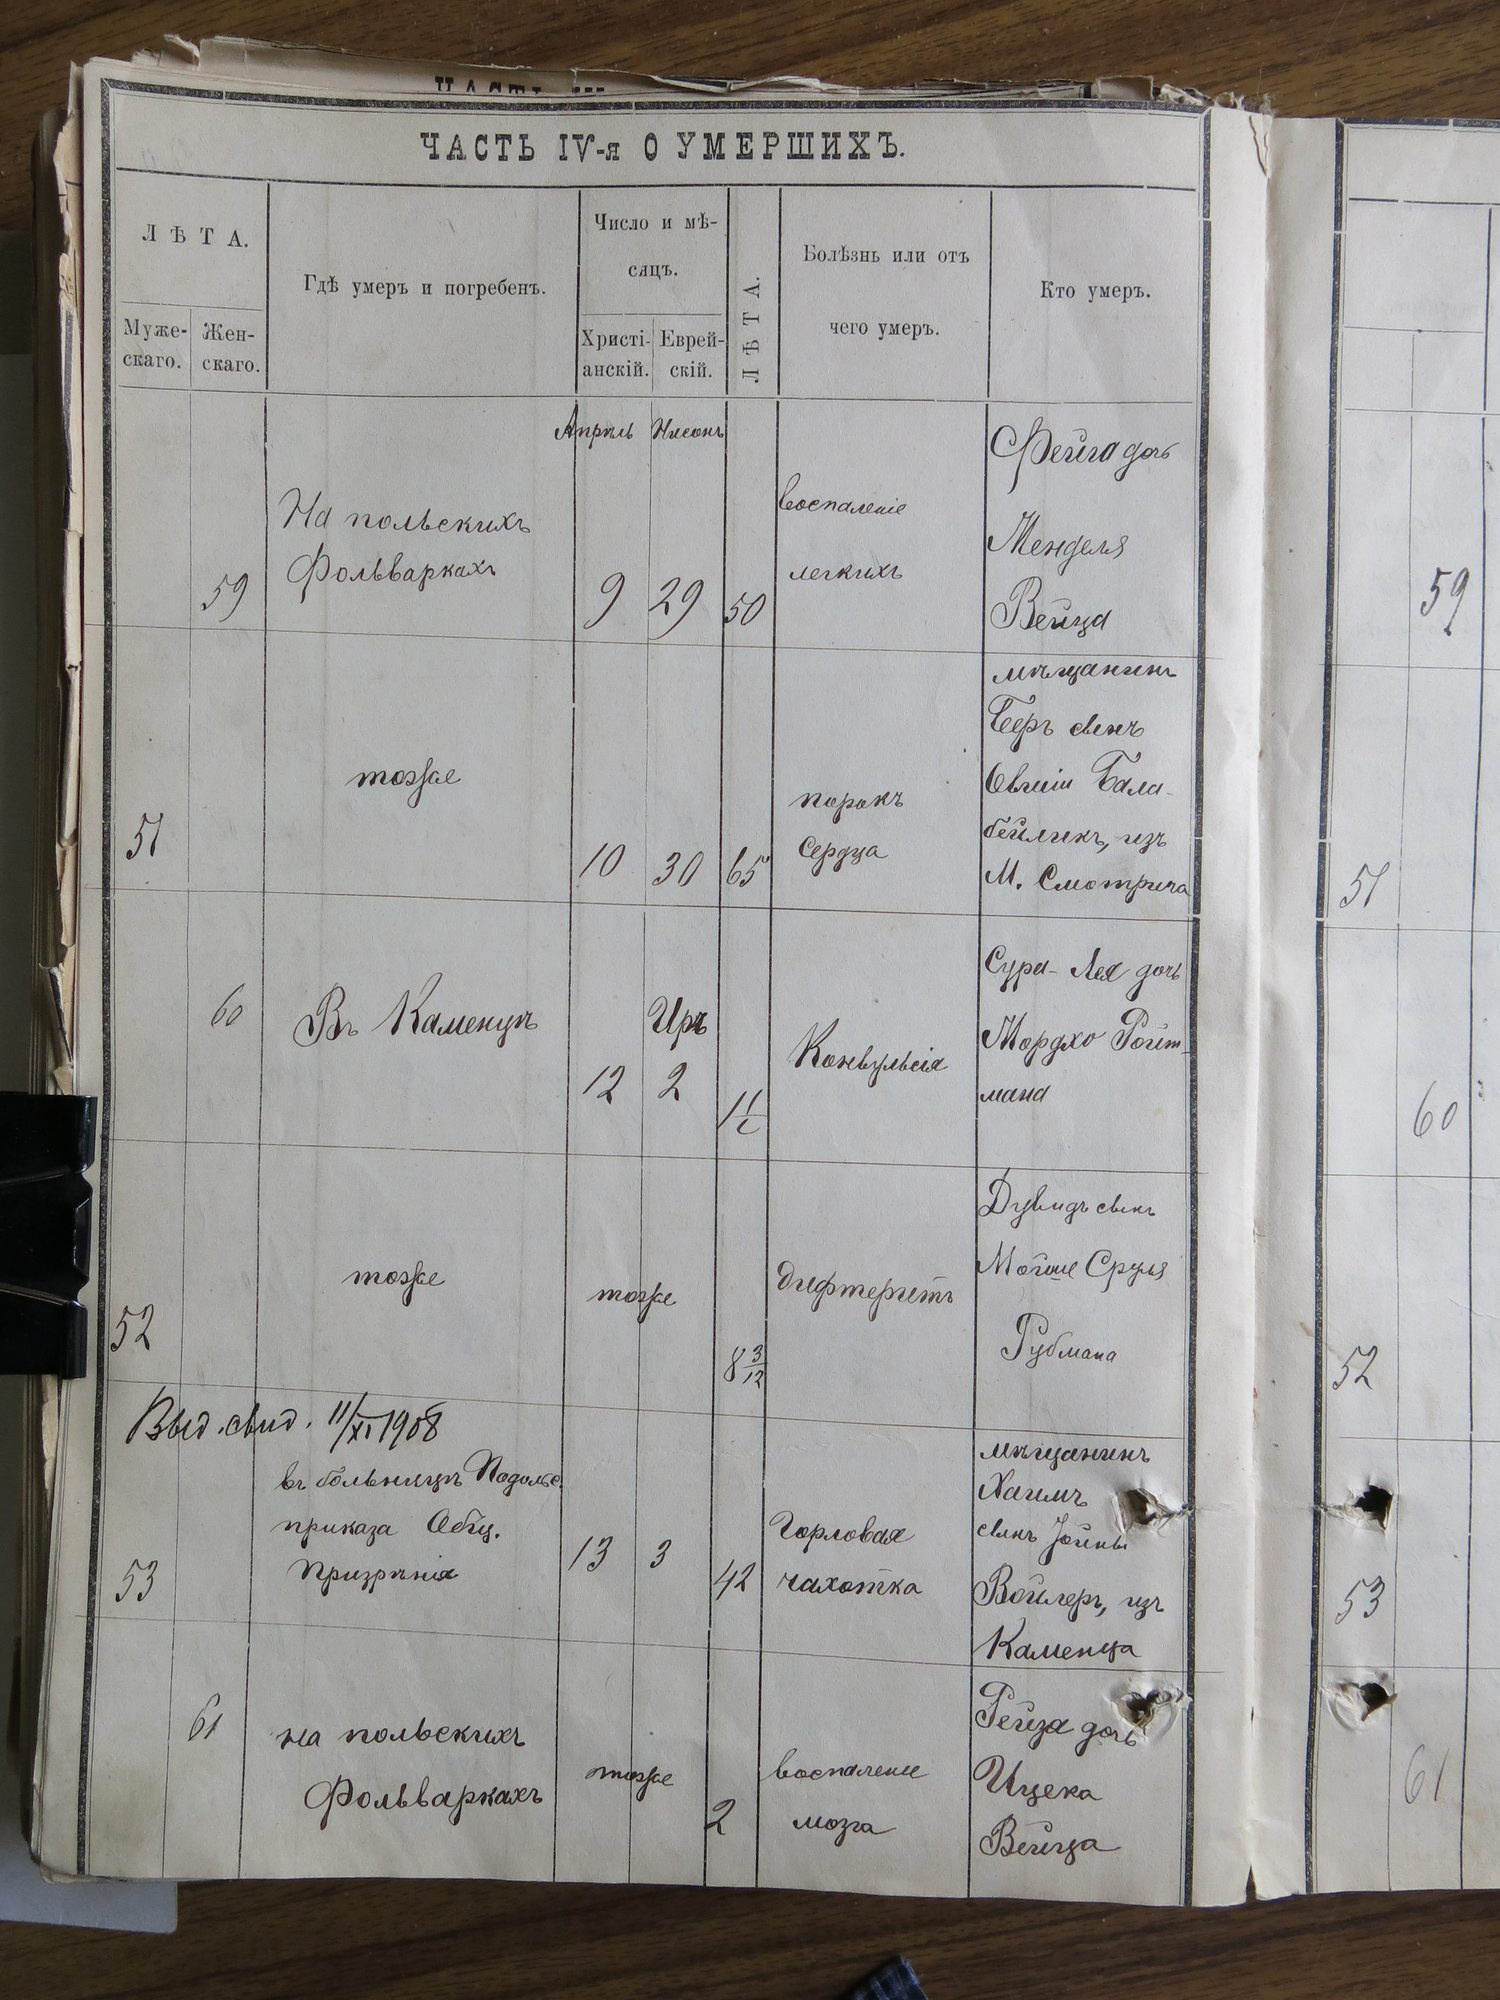 ЧАСТЬ IV-я О УМЕРШИХЪ.
ЛѢТА.
Муже-
скаго.
Жен-
скаго.
Гдѣ умеръ и погребенъ.
Число и мѣ-
сяцъ.
Христі-
анскій.
Еврей-
скій.
ЛѢТА.
Болѣзнь или отъ
чего умеръ.
Кто умеръ.
59
На польскихъ
Фольваркахъ
Апрѣль
9
Нисонъ
29
50
воспаленіе
легкихъ
Фейга дочь
Менделя
Вейца
51
тоже
10
30
65
порокъ
сердца
мѣщанинъ
Беръ сынъ
Овшіи Бала-
бейликъ, изъ
М. Смотрича
60
Въ Каменцѣ
12
Иръ
2
1 1/2
Конвульсія
Сура-Лея дочь
Мордхо Ройт-
мана
52
тоже
тоже
8 3/12
дифтеритъ
Дувидъ сынъ
Мойше Сруля
Рубмана
Выд. свид. 11/XI 1908
53
въ больницѣ Подольс.
приказа Общ.
Призрѣнія
13
3
42
Горловая
чахотка
мѣщанинъ
Хаимъ
сынъ Іойны
Войлеръ, изъ
Каменца
61
на польскихъ
Фольваркахъ
тоже
2
воспаление
мозга
Рейза дочь
Ицека
Вейца
59
51
60
52
53
61